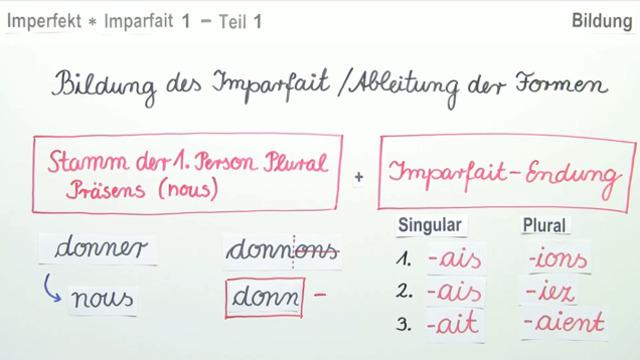 Imperfekt * Imparfait 1 – Teil 1 Bildung
Bildung des Imparfait / Ableitung der Formen
Stamm der 1. Person Plural
Präsens (nous)
+
Imparfait-Endung
Singular Plural
donner donnons
1. -ais -ions
nous donn -
2. -ais -iez
3. -ait -aient